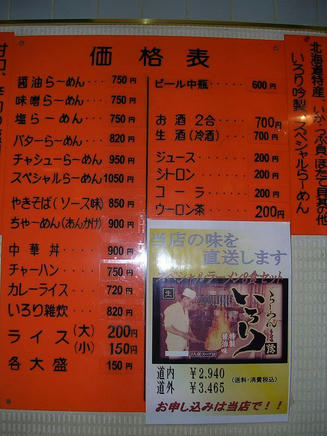 価格表
醤油らーめん・・・・ 750円
味噌らーめん・・・・ 750円
塩らーめん・・・・・ 750円
バターらーめん・・・ 820円
チャシューらーめん・ 950円
スペシャルらーめん・1050円
やきそば(ソース味) 850円
ちゃーめん(あんかけ) 900円
中華丼・・・・・・・ 900円
チャーハン・・・・・ 750円
カレーライス・・・・ 720円
いろり雑炊・・・・・ 820円
ライス(大) 200円
(小) 150円
各大盛・・・・・・ 150円
ビール中瓶・・・・・ 600円
お酒2合・・・・・ 700円
生酒(冷酒)・・・・ 700円
ジュース・・・・・ 200円
シトロン・・・・・ 200円
コーラ・・・・・・ 200円
ウーロン茶・・・・ 200円
当店の味を
直送します
いろり
道内 ¥2.940
道外 ¥3.465
(送料・消費税込)
お申し込みは当店で!!
北海道特産、いか、つぶ貝、ほたて貝其の他
いろり吟製 スペシャルらーめん